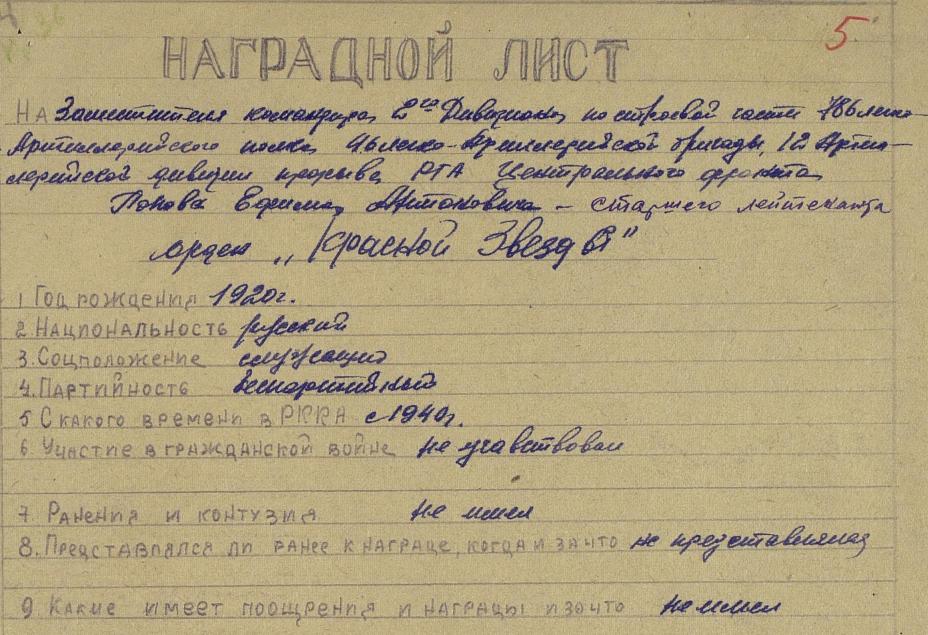 5
НАГРАДНОЙ ЛИСТ
На Заместителя командира 2го Дивизиона по строевой части 786 легко-
Артиллерийского полка 46 легко-Артиллерийской бригады, 12 Артил-
лерийской дивизии прорыва РГК Центрального фронта
Попова Ефима Антоновича – старшего лейтенанта
орден „Красной Звезды"
1 Год рождения 1920г.
2. Национальность русский
3. Соцположение служащий
4. Партийность беспартийный
5 С какого времени в РККА с 1940г.
6. Участие в гражданской войне не учавствовал
7. Ранения и контузия не имел
8. Представлялся ли ранее к награде, когда и за что не представлялся
9. Какие имеет поощрения и награды и за что не имел